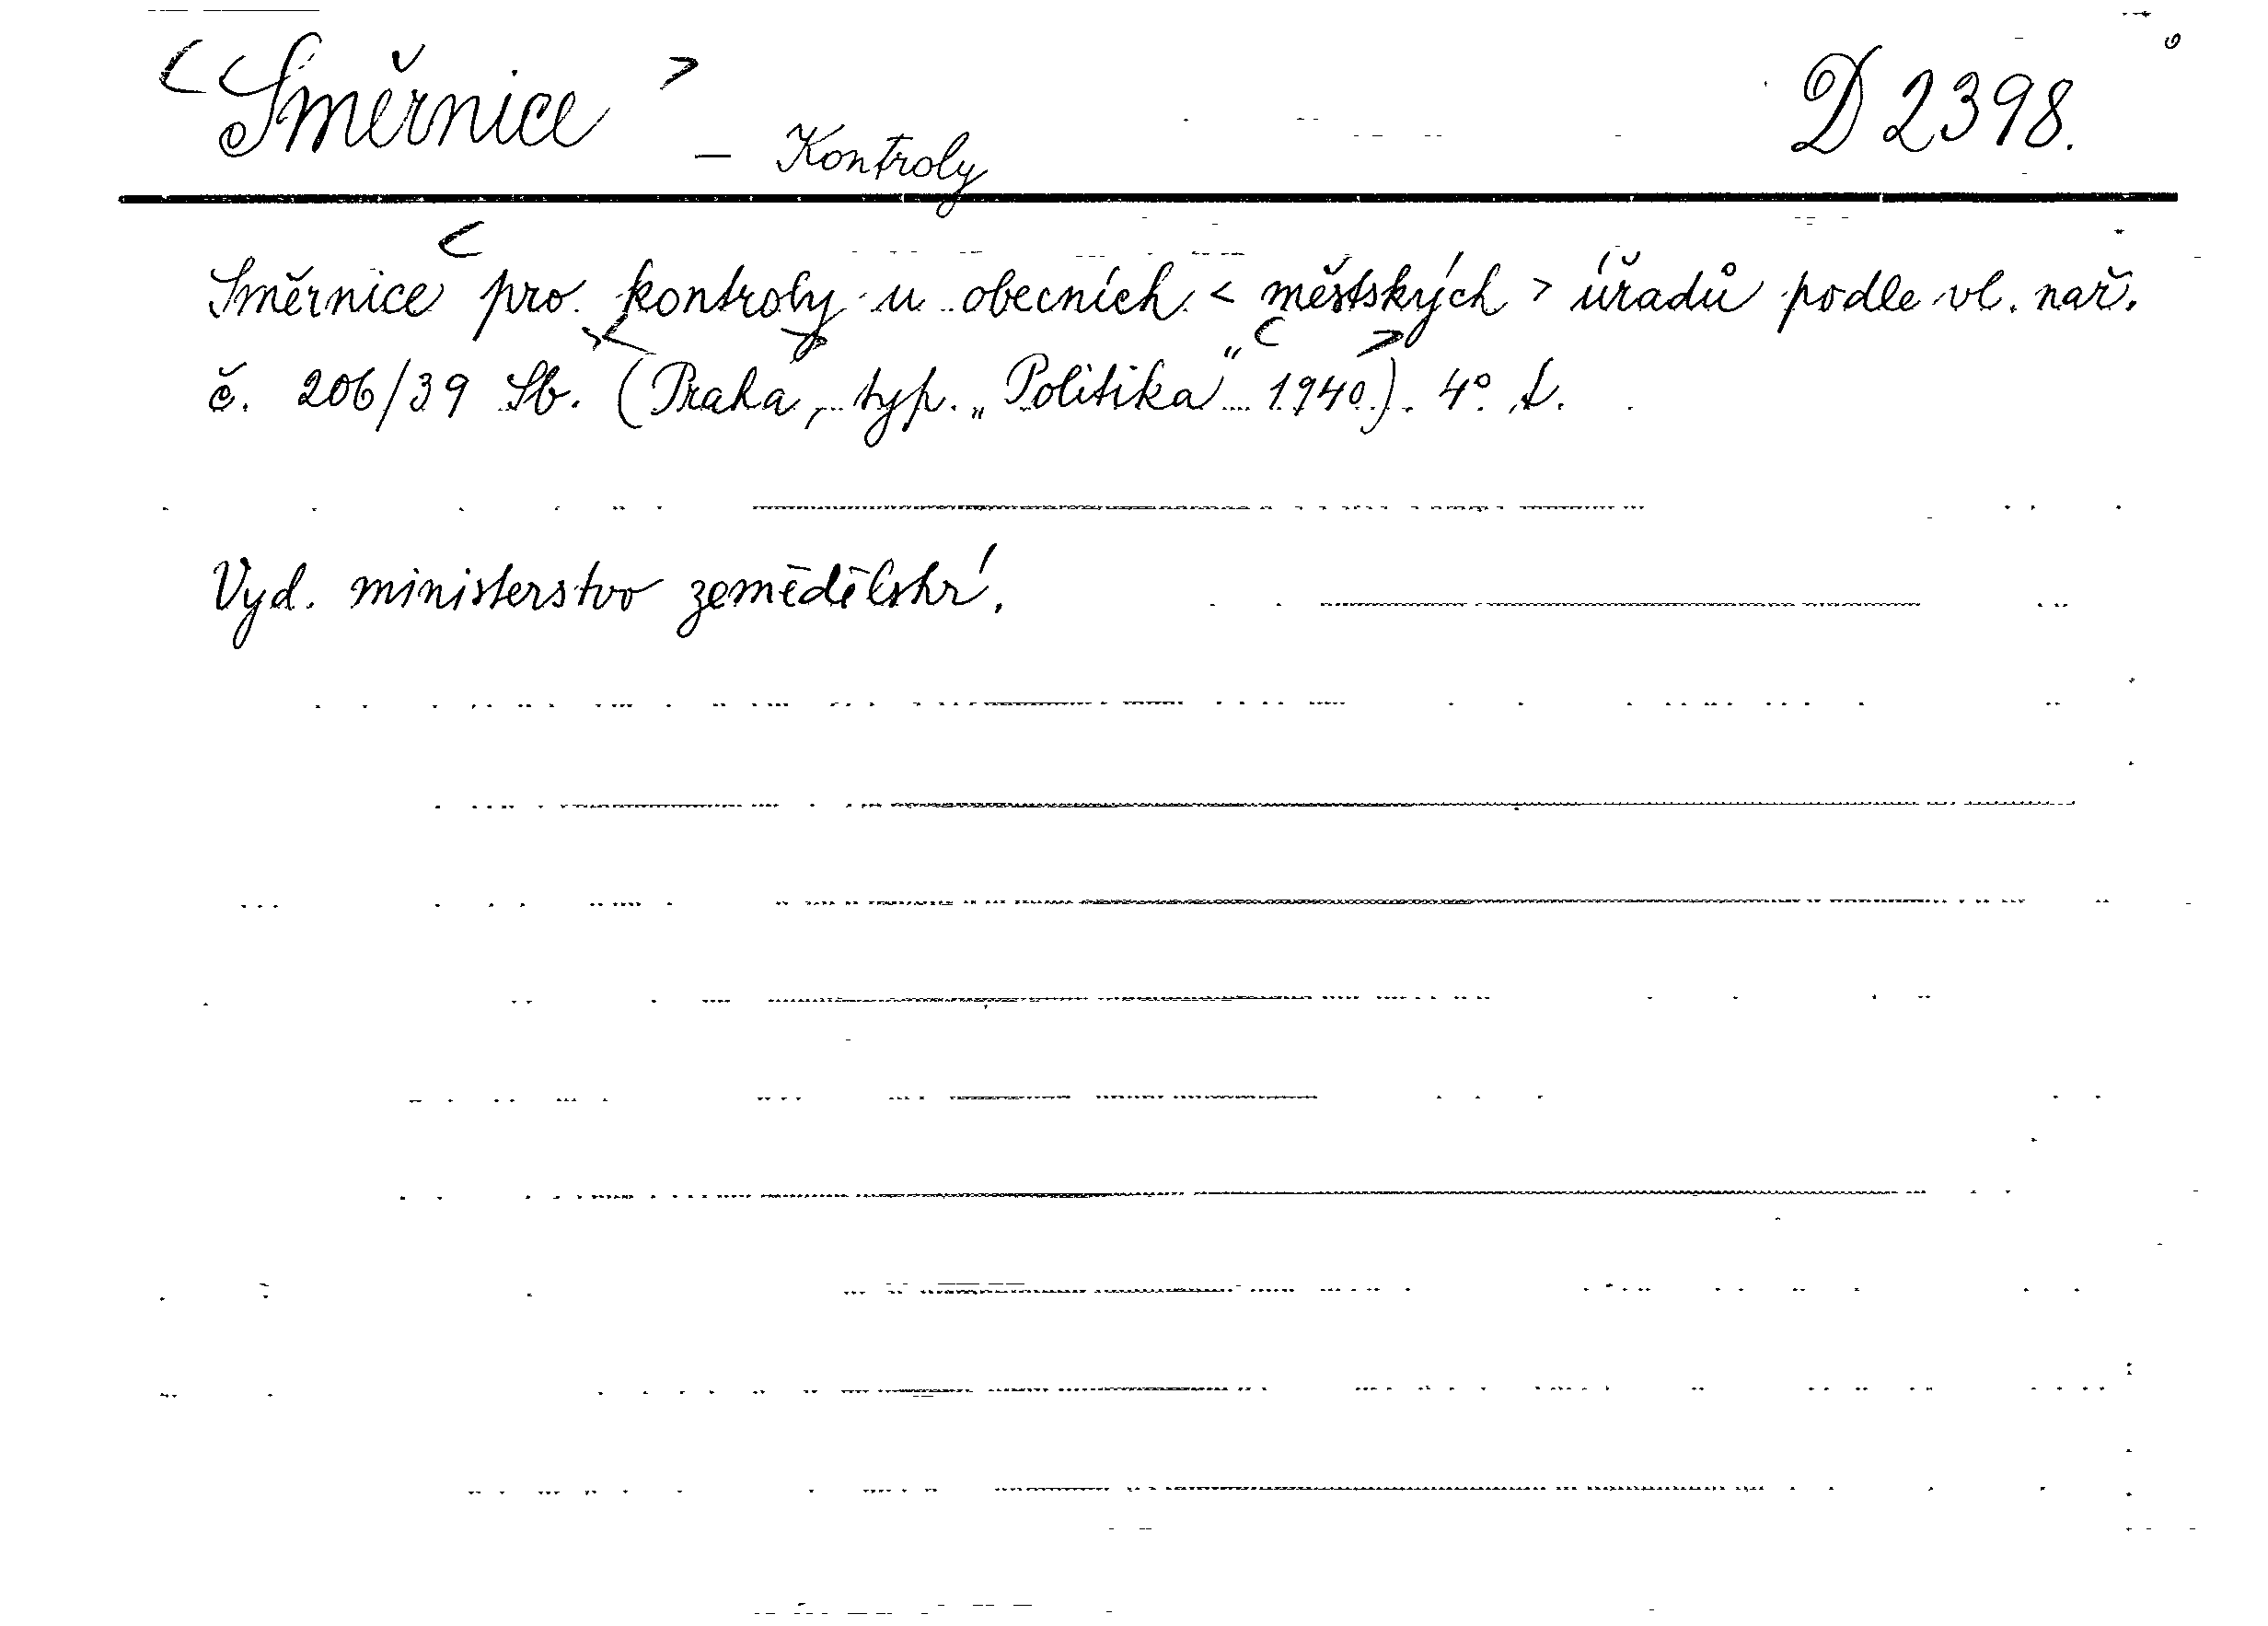 <Směrnice> – Kontroly D 2398.
Směrnice pro kontroly u obecních < městských > úřadů podle vl. nař.
č. 206/39 Sb. (Praha, typ. „Politika“ 1940). 4°. t.
Vyd. ministerstvo zemědělství.